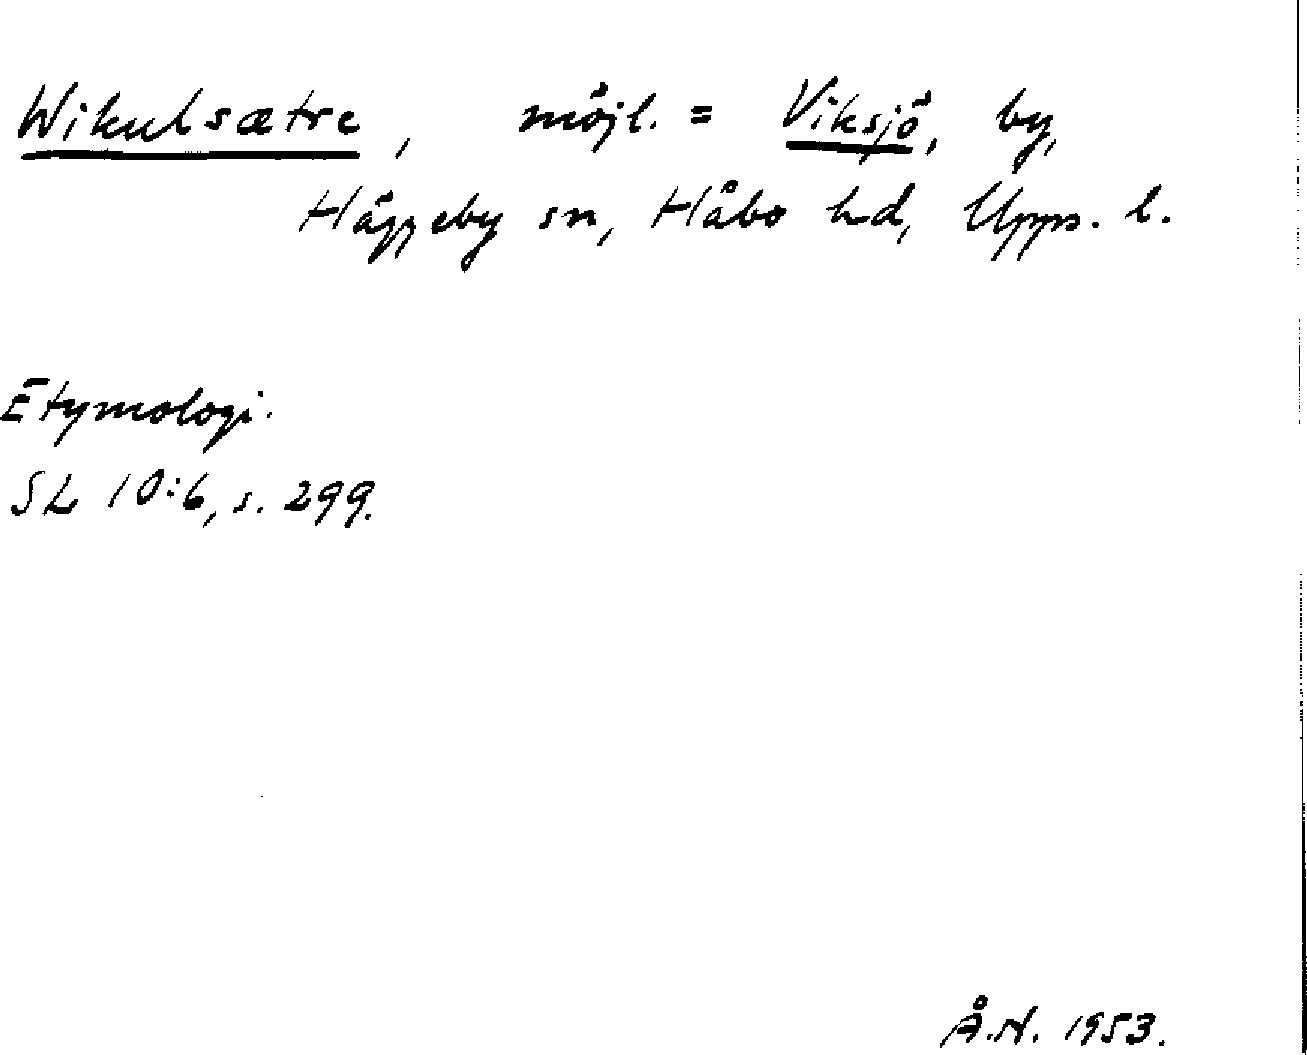 Wikulsætre, möjl. = Viksjö, by,
Häggeby sn, Håbo hd, Upps. l.
Etymologi.
SL 10:6, s. 299.
Å.N. 1953.